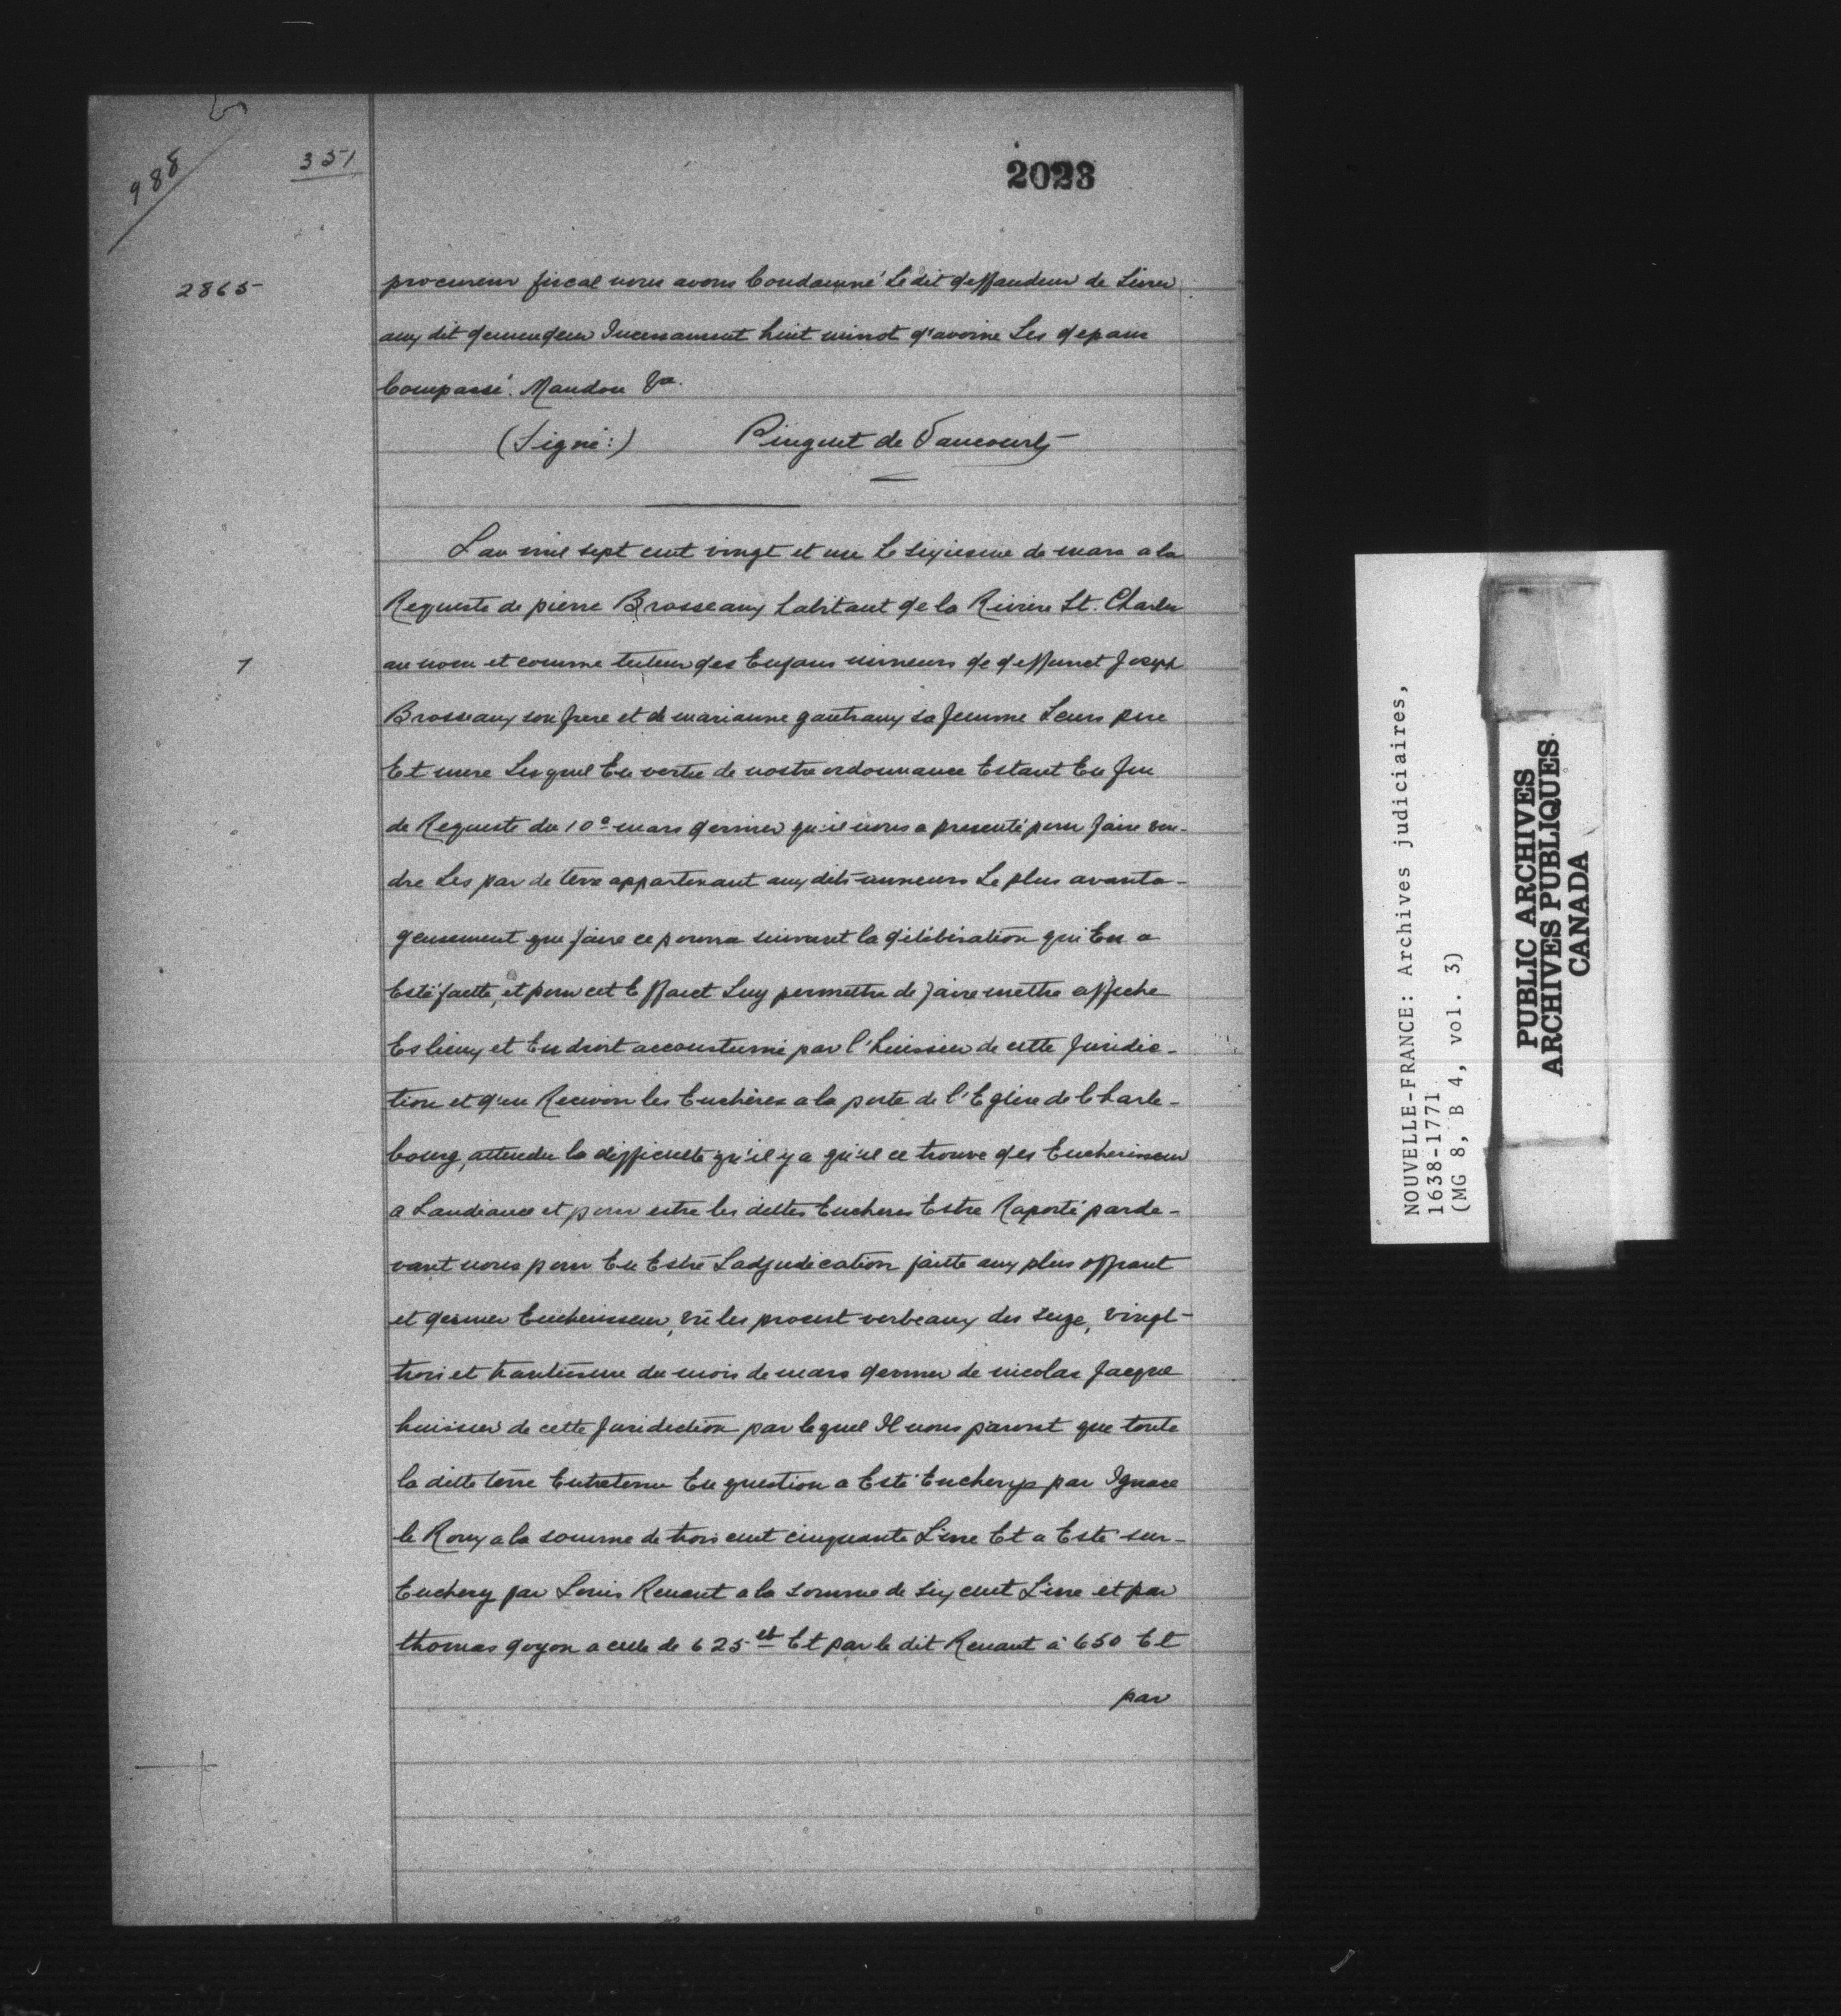 988
351
2023
2865
procureur fiscal nous avons Condamné Ledit deffandeur de Livrer
aux dit demendeur Incessamment huit minot d'avoine Les depans
Compassé. Mandon &a.
(Signé:) Pinguet de Vaucourt
L'an mil sept cent vingt et un Le sixiesme de mars a la
Requeste de pierre Brosseaux habitant de la Rivière St. Charles
7
au nom et comme tuteur des Enfans mineurs de deffunct Joseph
Brosseaux son frere et de marianne gautraux sa femme Leurs pere
Et mere Lesquel En vertu de nostre ordonnance Estant En fin
de Requeste du 10e mars dernier qu'il nous a presenté pour faire ven-
dre Les par de terre appartenant aux dits mineurs Le plus avanta-
geusement que faire ce pourra suivant la délibération qui En a
Esté faitte, et pour cet Effaict Luy permettre de faire mettre affiche
Es lieux et Endroit accoustumé par l'huissier de cette Juridic-
tion et d'en Recevoir les Enchères a la porte de l'Eglise de Charle-
bourg, attendu la difficulté qu'il y a qu'il ce trouve des Encherisseur
a Laudiance et pour estre les dittes Encheres Estre Raporté parde-
vant nous pour En Estre Ladjudication faitte aux plus offrant
et dernier Encherisseur, vû les procest verbeaux des seize, vingt-
trois et trantiesme du mois de mars dernier de nicolas Jacque
huissier de cette Juridiction par lequel Il nous paroist que toute
la ditte terre Entretenu En question a Esté Encherys par Ignace
le Roux a la somme de trois cent cinquante Livre Et a Esté sur-
Enchery par Louis Renaut a la somme de six cent Livre et par
thomas goyon a celle de 625 lt Et par le dit Renaut à 650 Et
par
NOUVELLE-FRANCE: Archives judiciaires,
1638-1771
(MG 8, B 4, vol. 3)
PUBLIC ARCHIVES
ARCHIVES PUBLIQUES
CANADA